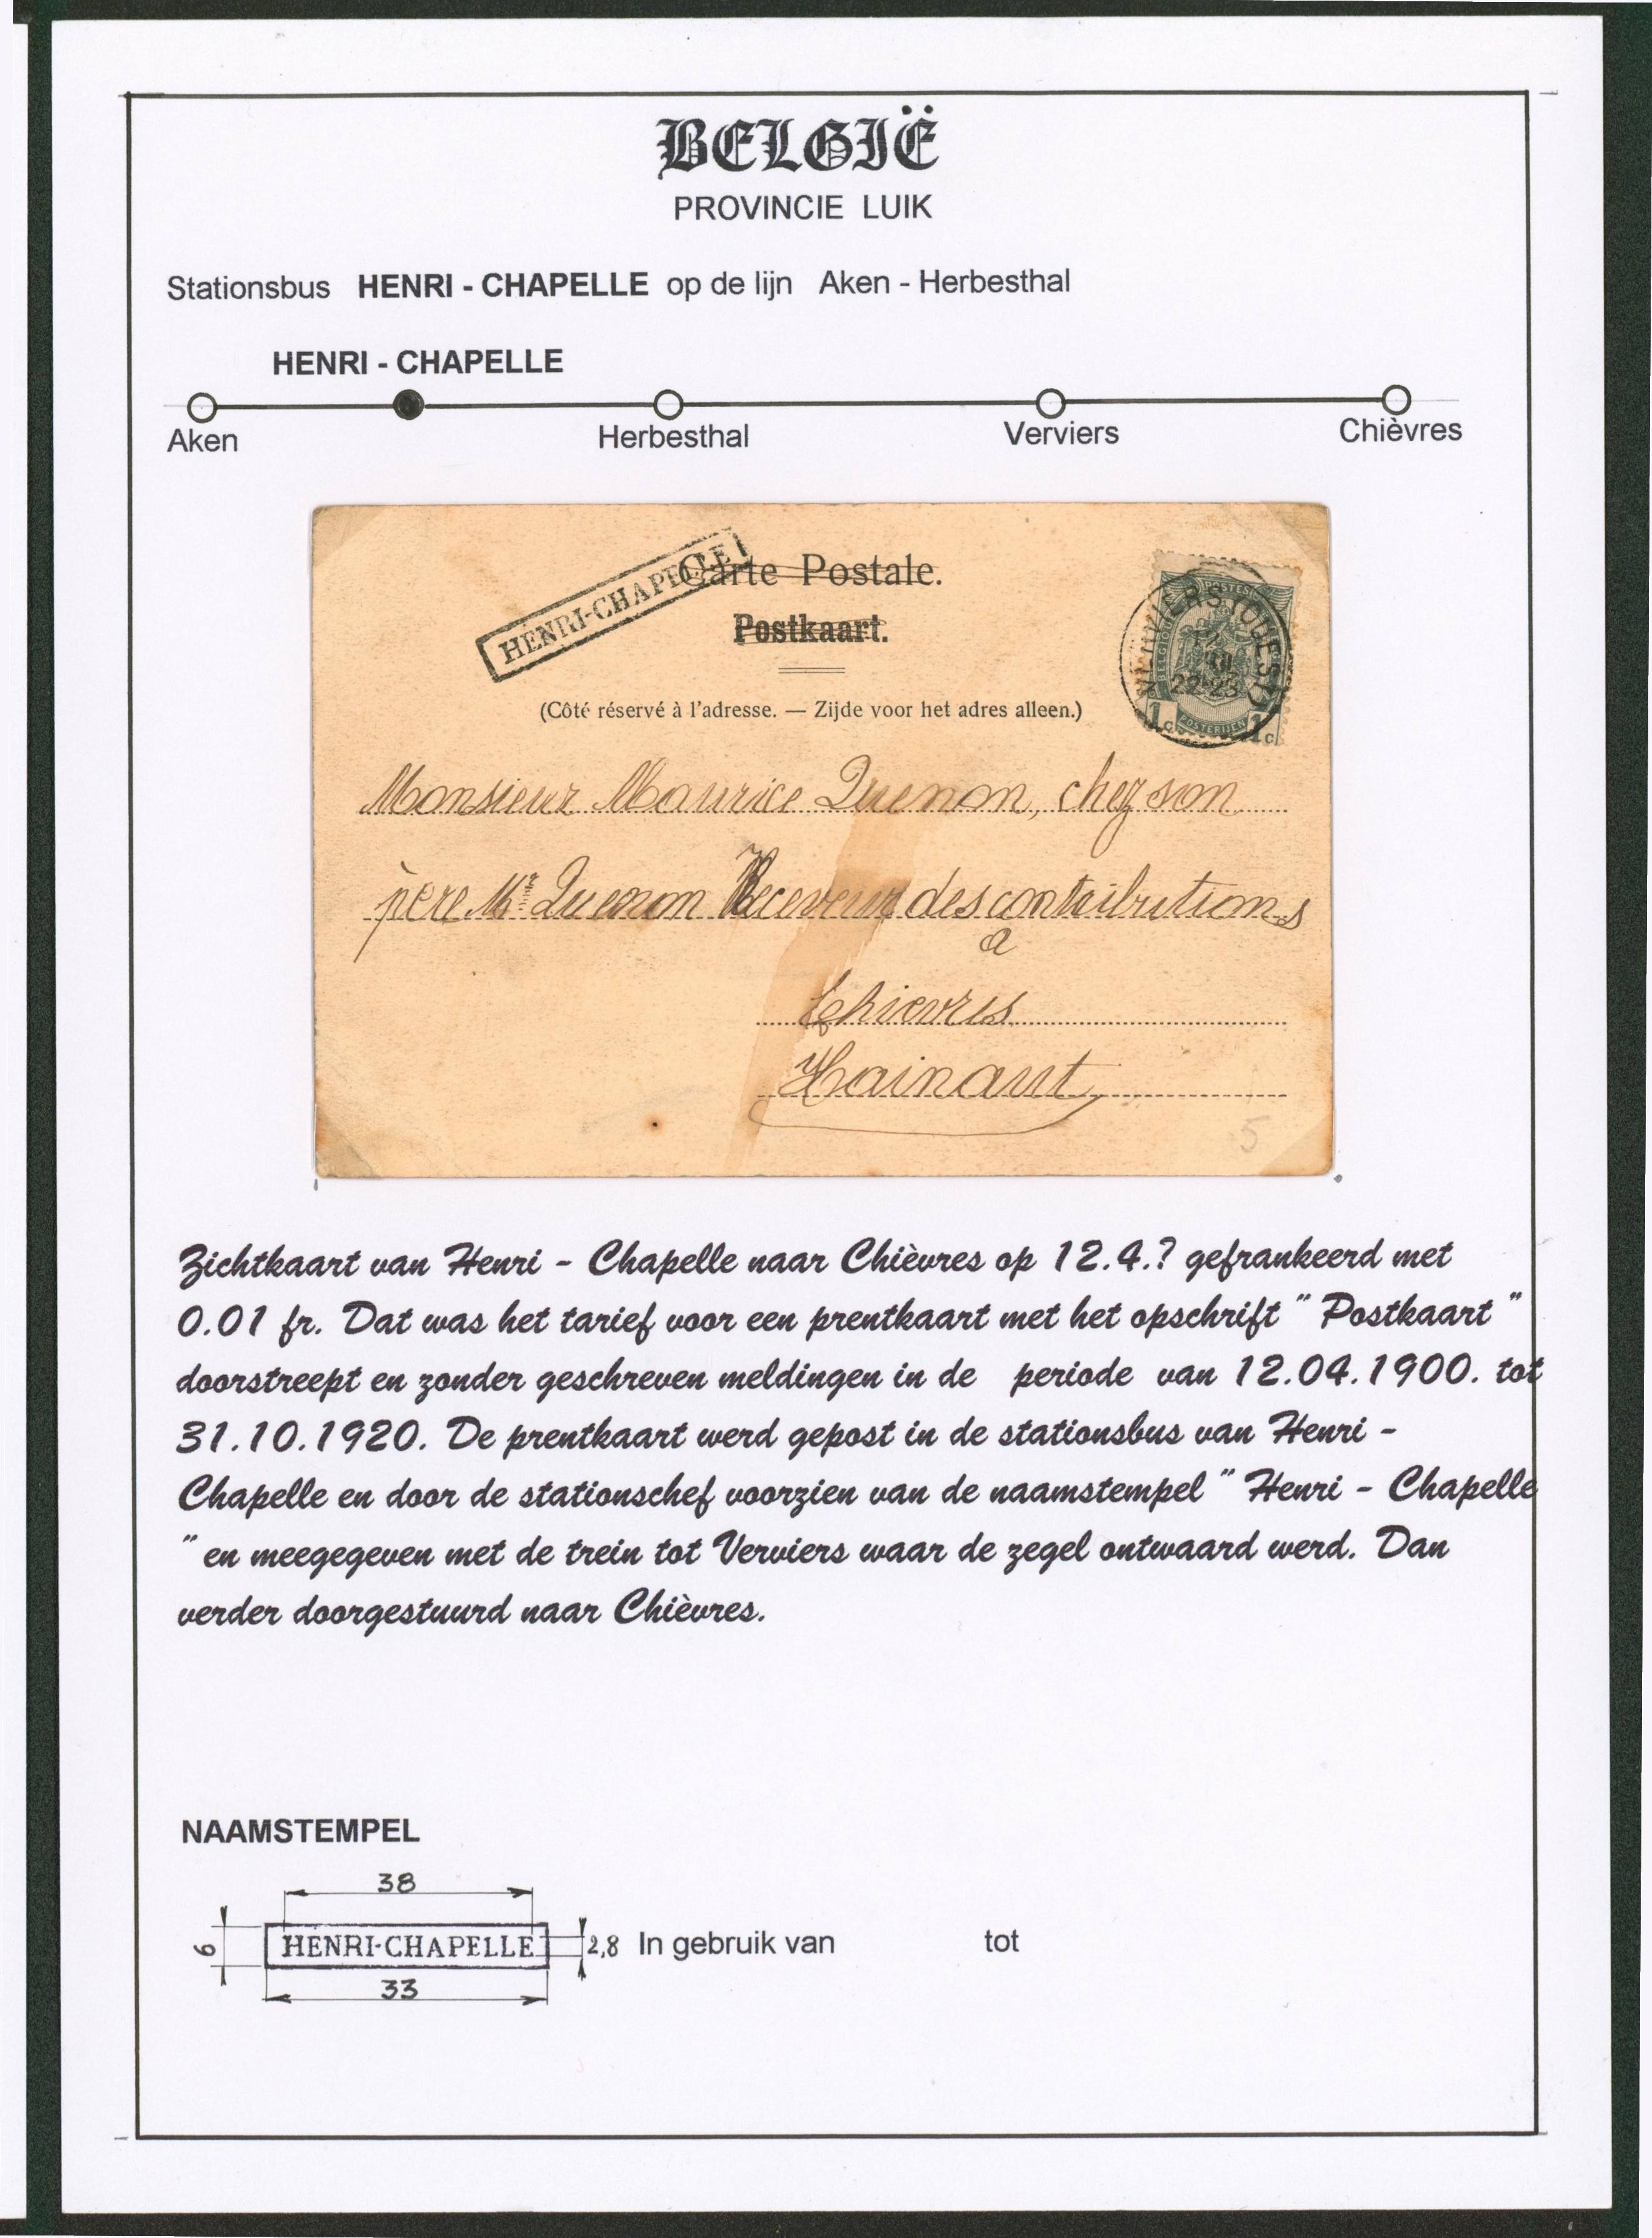 BELGIË
PROVINCIE LUIK
Stationsbus HENRI - CHAPELLE op de lijn Aken - Herbesthal
HENRI - CHAPELLE
Aken Herbesthal Verviers Chièvres
HENRI-CHAPELLE
Carte Postale.
Postkaart.
(Côté réservé à l'adresse. — Zijde voor het adres alleen.)
VERVIERS (OUEST)
22-23
POSTES
BELGIQUE
POSTERIJEN
1c 1c
Monsieur Maurice Quenon, chez son
père Mr Quenon Receveur des contributions
a
Chievres
Hainaut
5
Zichtkaart van Henri - Chapelle naar Chièvres op 12.4.? gefrankeerd met
0.01 fr. Dat was het tarief voor een prentkaart met het opschrift " Postkaart "
doorstreept en zonder geschreven meldingen in de periode van 12.04.1900. tot
31.10.1920. De prentkaart werd gepost in de stationsbus van Henri -
Chapelle en door de stationschef voorzien van de naamstempel " Henri - Chapelle
" en meegegeven met de trein tot Verviers waar de zegel ontwaard werd. Dan
verder doorgestuurd naar Chièvres.
NAAMSTEMPEL
38
6 HENRI-CHAPELLE 2,8 In gebruik van tot
33